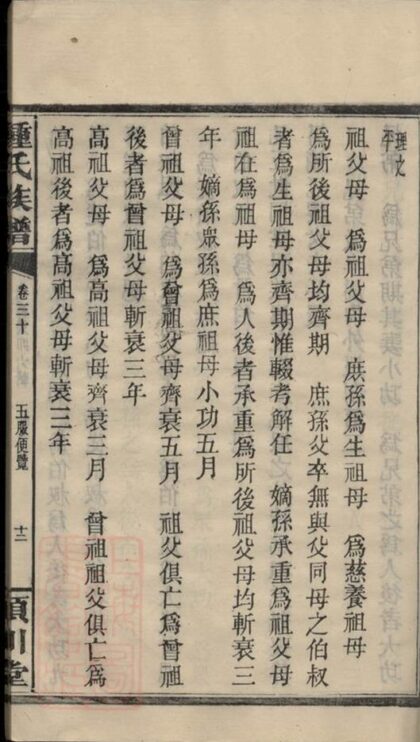 祖父母　為祖父母　庶孫為生祖母　為慈養祖母
為所後祖父母均齊期　庶孫父卒無與父同母之伯叔
者為生祖母亦齊期惟輟考解任　嫡孫承重為祖父母
祖在為祖母　為人後者承重為所後祖父母均斬衰三
年　嫡孫眾孫為庶祖母小功五月
曾祖父母　為曾祖父母齊衰五月　祖父俱亡為曾祖
後者為曾祖父母斬衰三年
高祖父母　為高祖父母齊衰三月　曾祖祖父俱亡為
高祖後者為高祖父母斬衰三年
鍾氏族譜
卷三十
五服便覽
十二
潁川堂